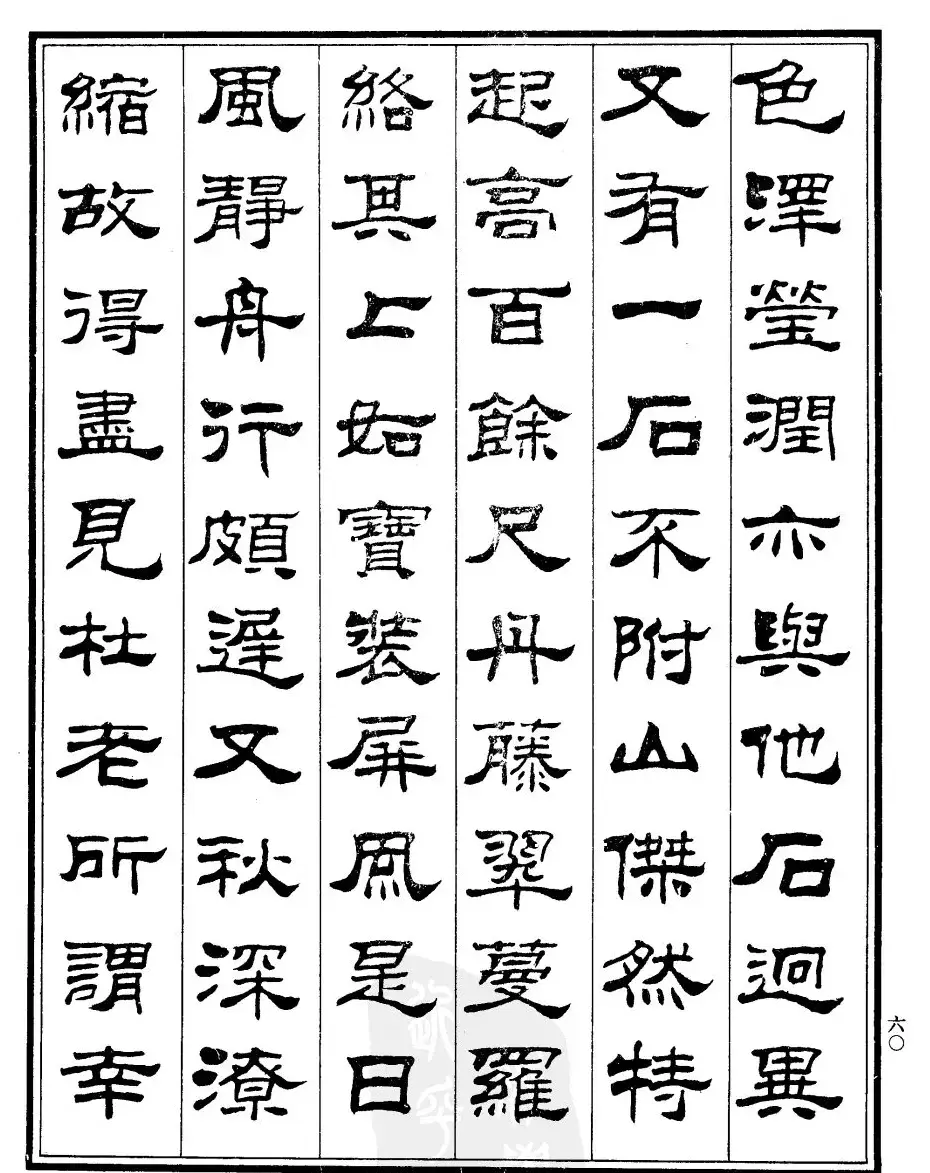 色澤瑩潤亦與他石迥異
又有一石不附山傑然特
起高百餘尺丹藤翠蔓羅
絡其上如寶裝屏風是日
風靜舟行頗遲又秋深潦
縮故得盡見杜老所謂幸
六〇